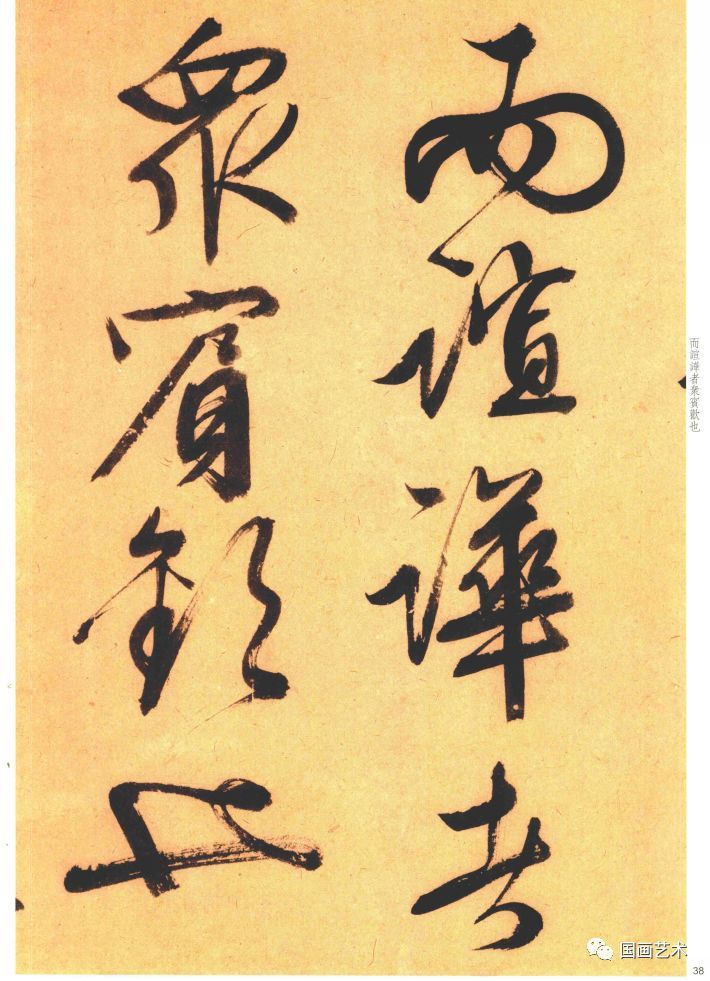 而諠譁者
衆賓歡也
而諠譁者衆賓歡也
国画艺术
38